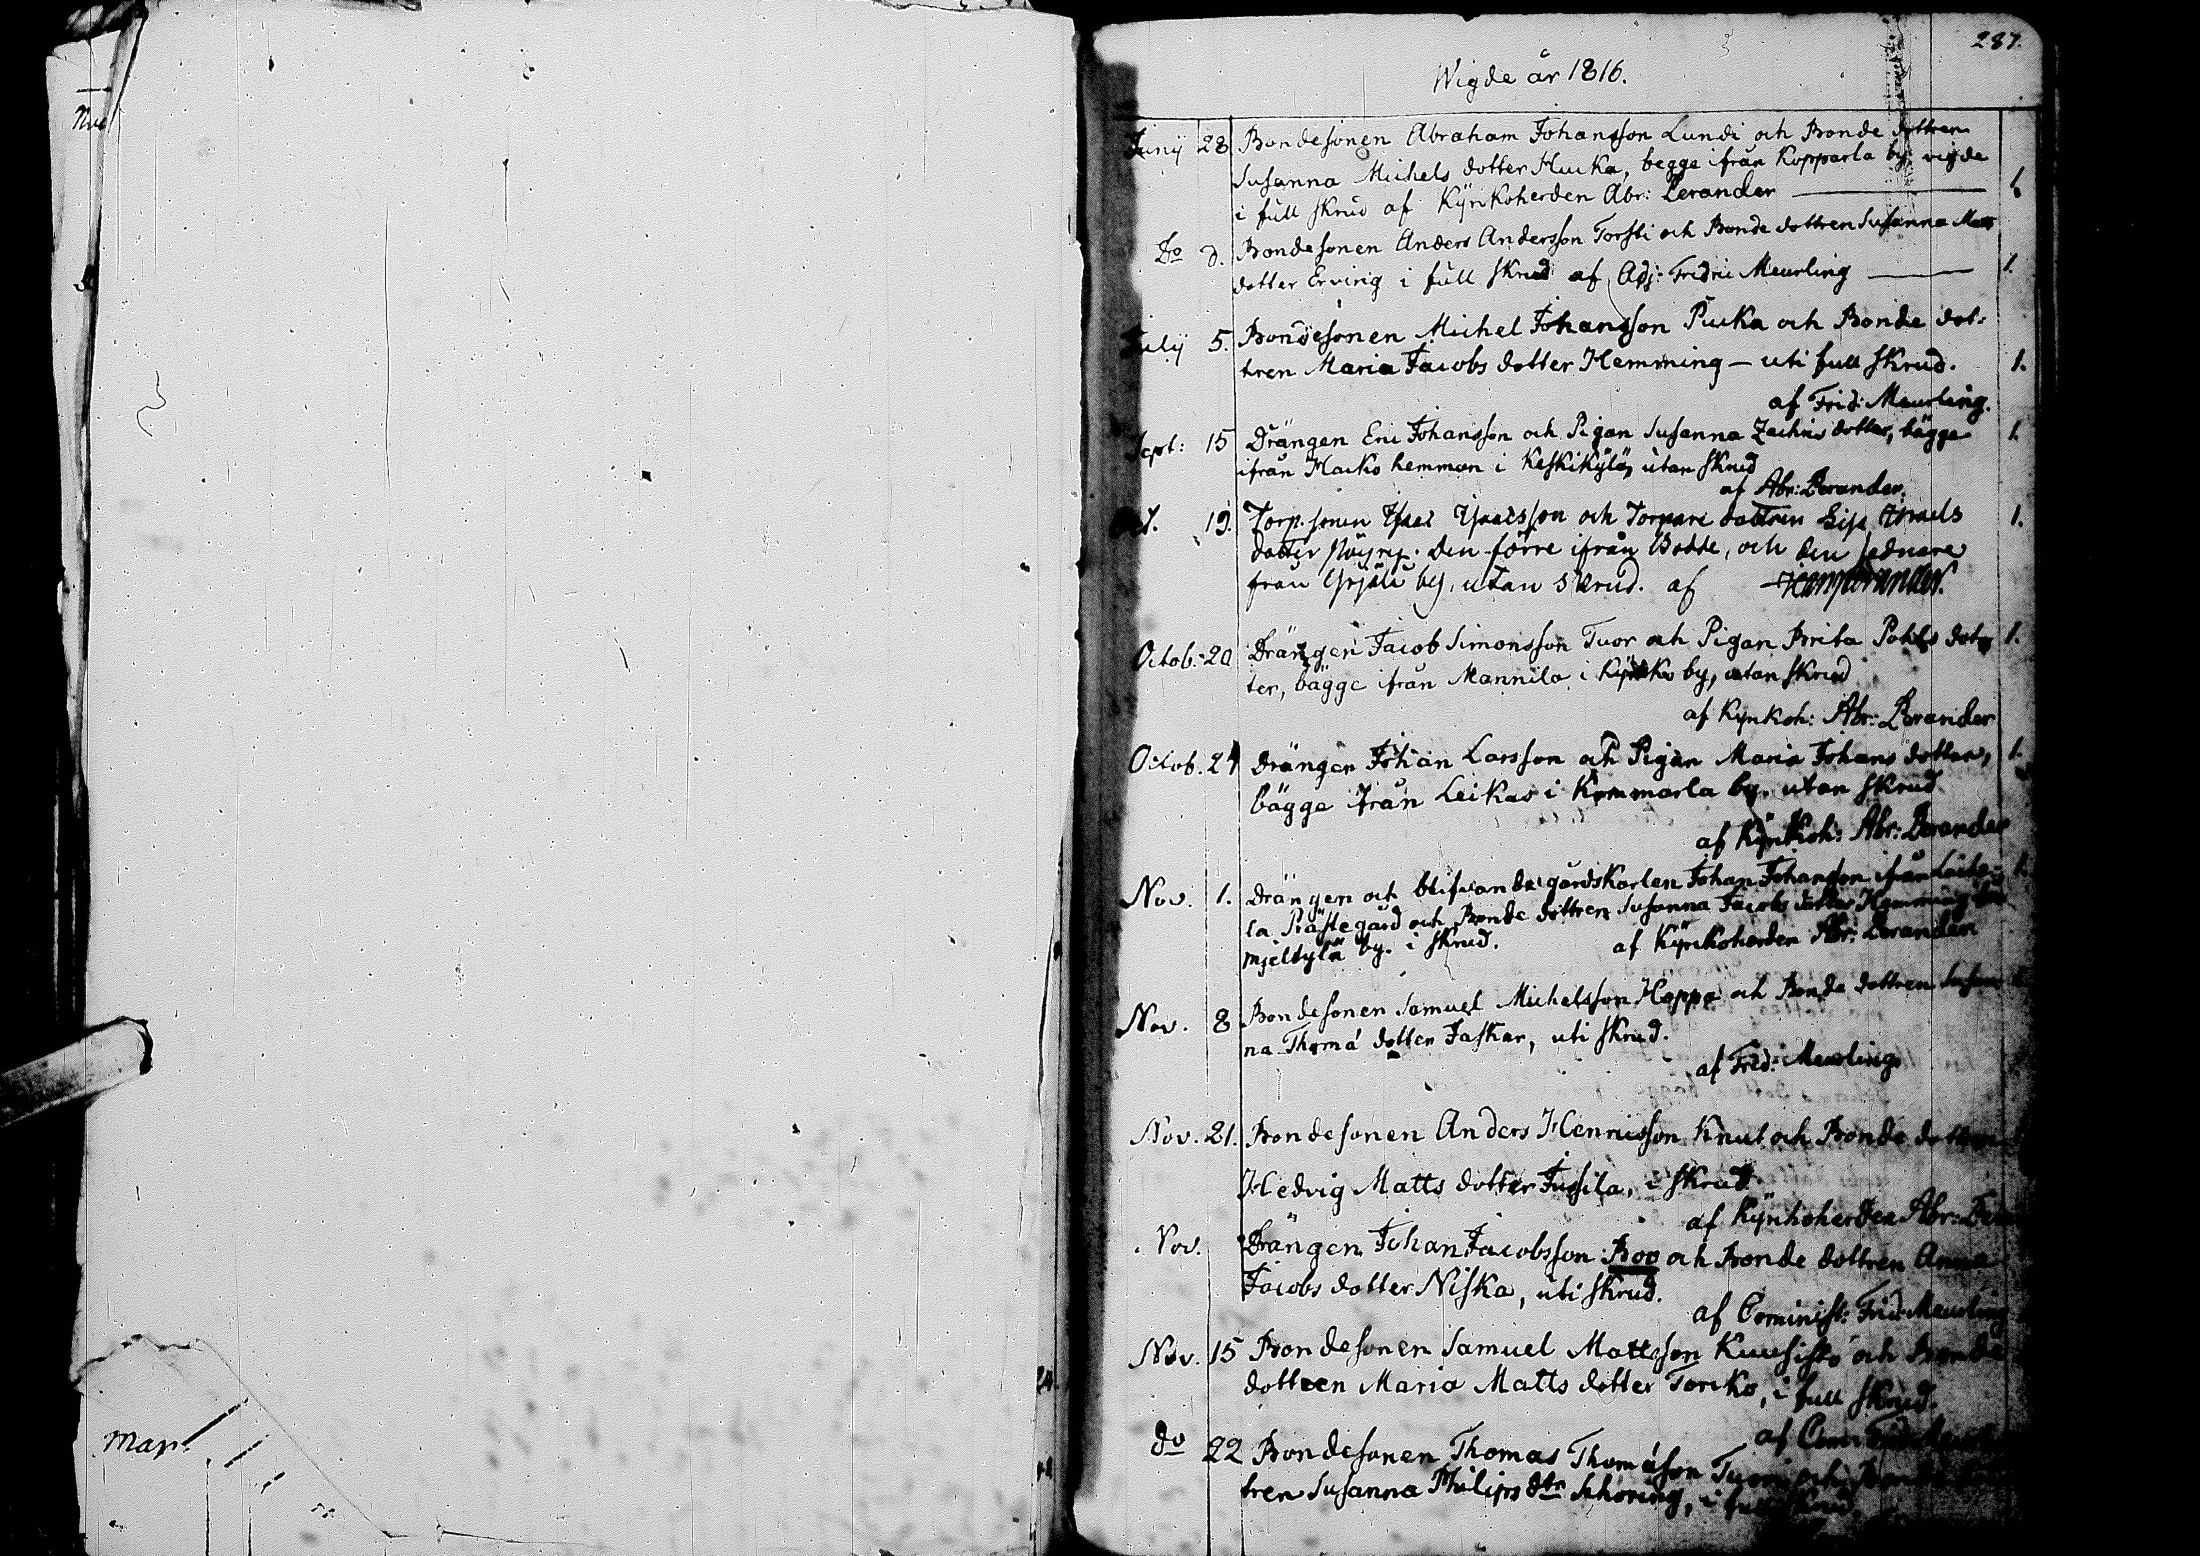 287.
Wigde år 1816.
Junij 28 Bondesonen Abraham Johansson Lundi och Bonde dottren
Susanna Michels dotter Hucka, begge ifrån Kopparla by, vigde
i full skrud af Kyrkoherden Abr: Perander 1
Do d. Bondesonen Anders Andersson Torsti och Bonde dottren Susanna Matts
dotter Erving i full skrud af Adj: Fredric Meurling 1.
Julij 5. Bondesonen Michel Johansson Pucka och Bonde dot-
tren Maria Jacobs dotter Hemming – uti full skrud. 1.
af Frid: Meurling.
Sept: 15 Drängen Eric Johansson och Pigan Susanna Zachris dotter, bägge 1.
ifrån Hacko hemman i Keskikylä, utan skrud
af Abr: Perander.
Oct. 19. Torp. sonen Isaac Isaacsson och Torpare dottren Lisa Israels 1.
dotter Den förre ifrån Bodde, och den sednare
från by, utan skrud. af
Octob. 20 Drängen Jacob Simonsson Tuor och Pigan Brita Pohls dot- 1.
ter, bägge ifrån Mannila i Kyrko by, utan skrud
af Kyrkoh: Abr: Perander
Octob. 24 Drängen Johan Larsson och Pigan Maria Johans dotter, 1.
bägge från Leikas i by. utan skrud
af Kyrkoh: Abr: Perander
Nov. 1. Drängen och blifvande gårdskarlen Johan Johansson ifrån Laite- 1.
la Prästegård och Bonde dottren Susanna Jacobs dotter Hemming
by. i skrud. af Kyrkoherden Abr: Perander
Nov. 8 Bondesonen Samuel Michelsson Hoppa och Bonde dottren Susan
na Thomæ dotter Jaskar, uti skrud.
af Frid: Meurling
Nov. 21. Bondesonen Anders Henricsson Knut och Bonde dottren
Hedvig Matts dotter Jussila, i skrud
af Kyrkoherden Abr:
Nov. Drängen Johan Jacobsson Roo och Bonde dottren Anna
Jacobs dotter Niska, uti skrud.
af Cominist: Frid: Meurling
Nov. 15 Bondesonen Samuel Mattsson Kuusisto och Bonde
dottren Maria Matts dotter Torcko, i full skrud.
af
do 22 Bondesonen Thomas Thomæson och
tren Susanna Philips dtr Schoring, i full skrud
Mar.